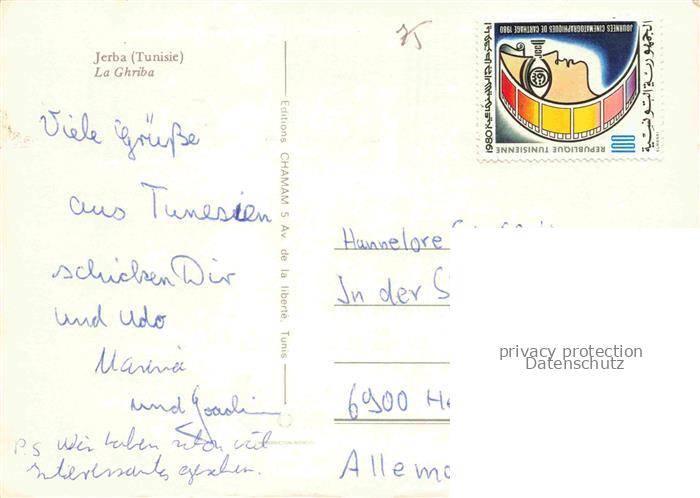 Jerba (Tunisie)
La Ghriba
75
Viele Grüße
aus Tunesien
schicken Dir
und Udo
Marina
und Joachim
P.S Wir haben schon viel
interessantes gesehen.
Editions CHAMAM 5 Av. de la liberté, Tunis
JOURNEES CINEMATOGRAPHIQUES DE CARTHAGE 1980
الجمهورية التونسية
1980
REPUBLIQUE TUNISIENNE
100
Hannelore
In der S
6900 He
Allema
privacy protection
Datenschutz